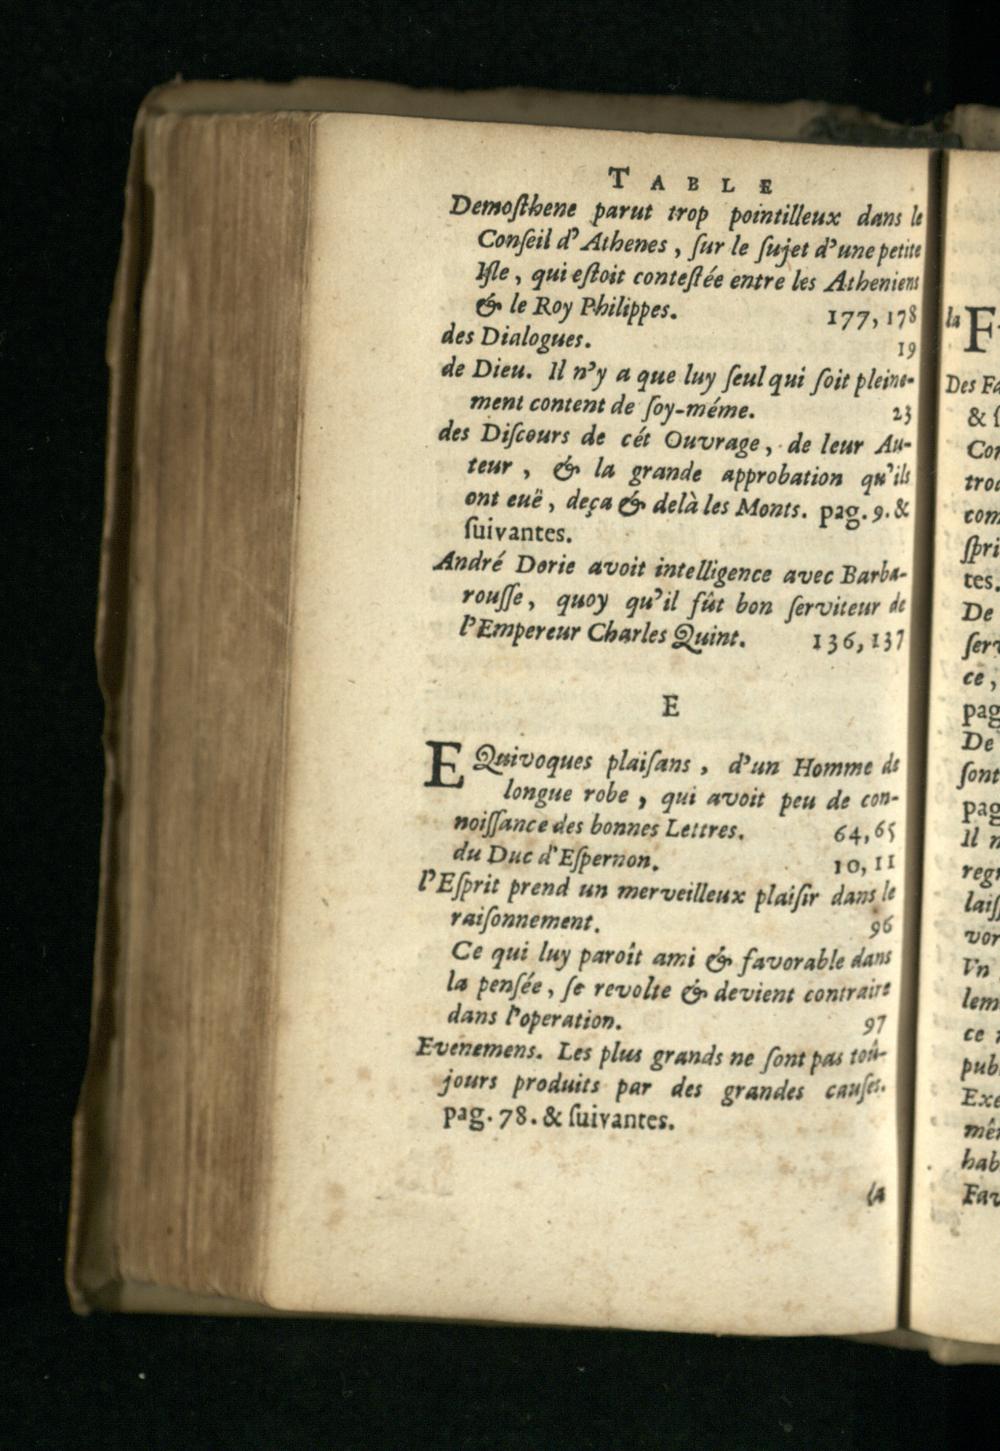 TABLE
Demosthene parut trop pointilleux dans le
Conseil d'Athenes, sur le sujet d'une petite
Isle, qui estoit contestée entre les Atheniens
& le Roy Philippes. 177, 178
des Dialogues. 19
de Dieu. Il n'y a que luy seul qui soit pleine-
ment content de soy-méme. 23
des Discours de cét Ouvrage, de leur Au-
teur, & la grande approbation qu'ils
ont euë, deça & delà les Monts. pag. 9. &
suivantes.
André Dorie avoit intelligence avec Barba-
rousse, quoy qu'il fût bon serviteur de
l'Empereur Charles Quint. 136, 137
E
EQuivoques plaisans, d'un Homme de
longue robe, qui avoit peu de con-
noissance des bonnes Lettres. 64, 65
du Duc d'Espernon. 10, 11
l'Esprit prend un merveilleux plaisir dans le
raisonnement. 96
Ce qui luy paroît ami & favorable dans
la pensée, se revolte & devient contraire
dans l'operation. 97
Evenemens. Les plus grands ne sont pas toû-
jours produits par des grandes causes.
pag. 78. & suivantes.
la
la F
Des Fa
& s
Con
trod
com
spri
tes.
De
serv
ce,
pag
De
sont
pag
Il n
regn
laiss
vor
Vn
lem
ce n
pub
Exe
mên
hab
Fav